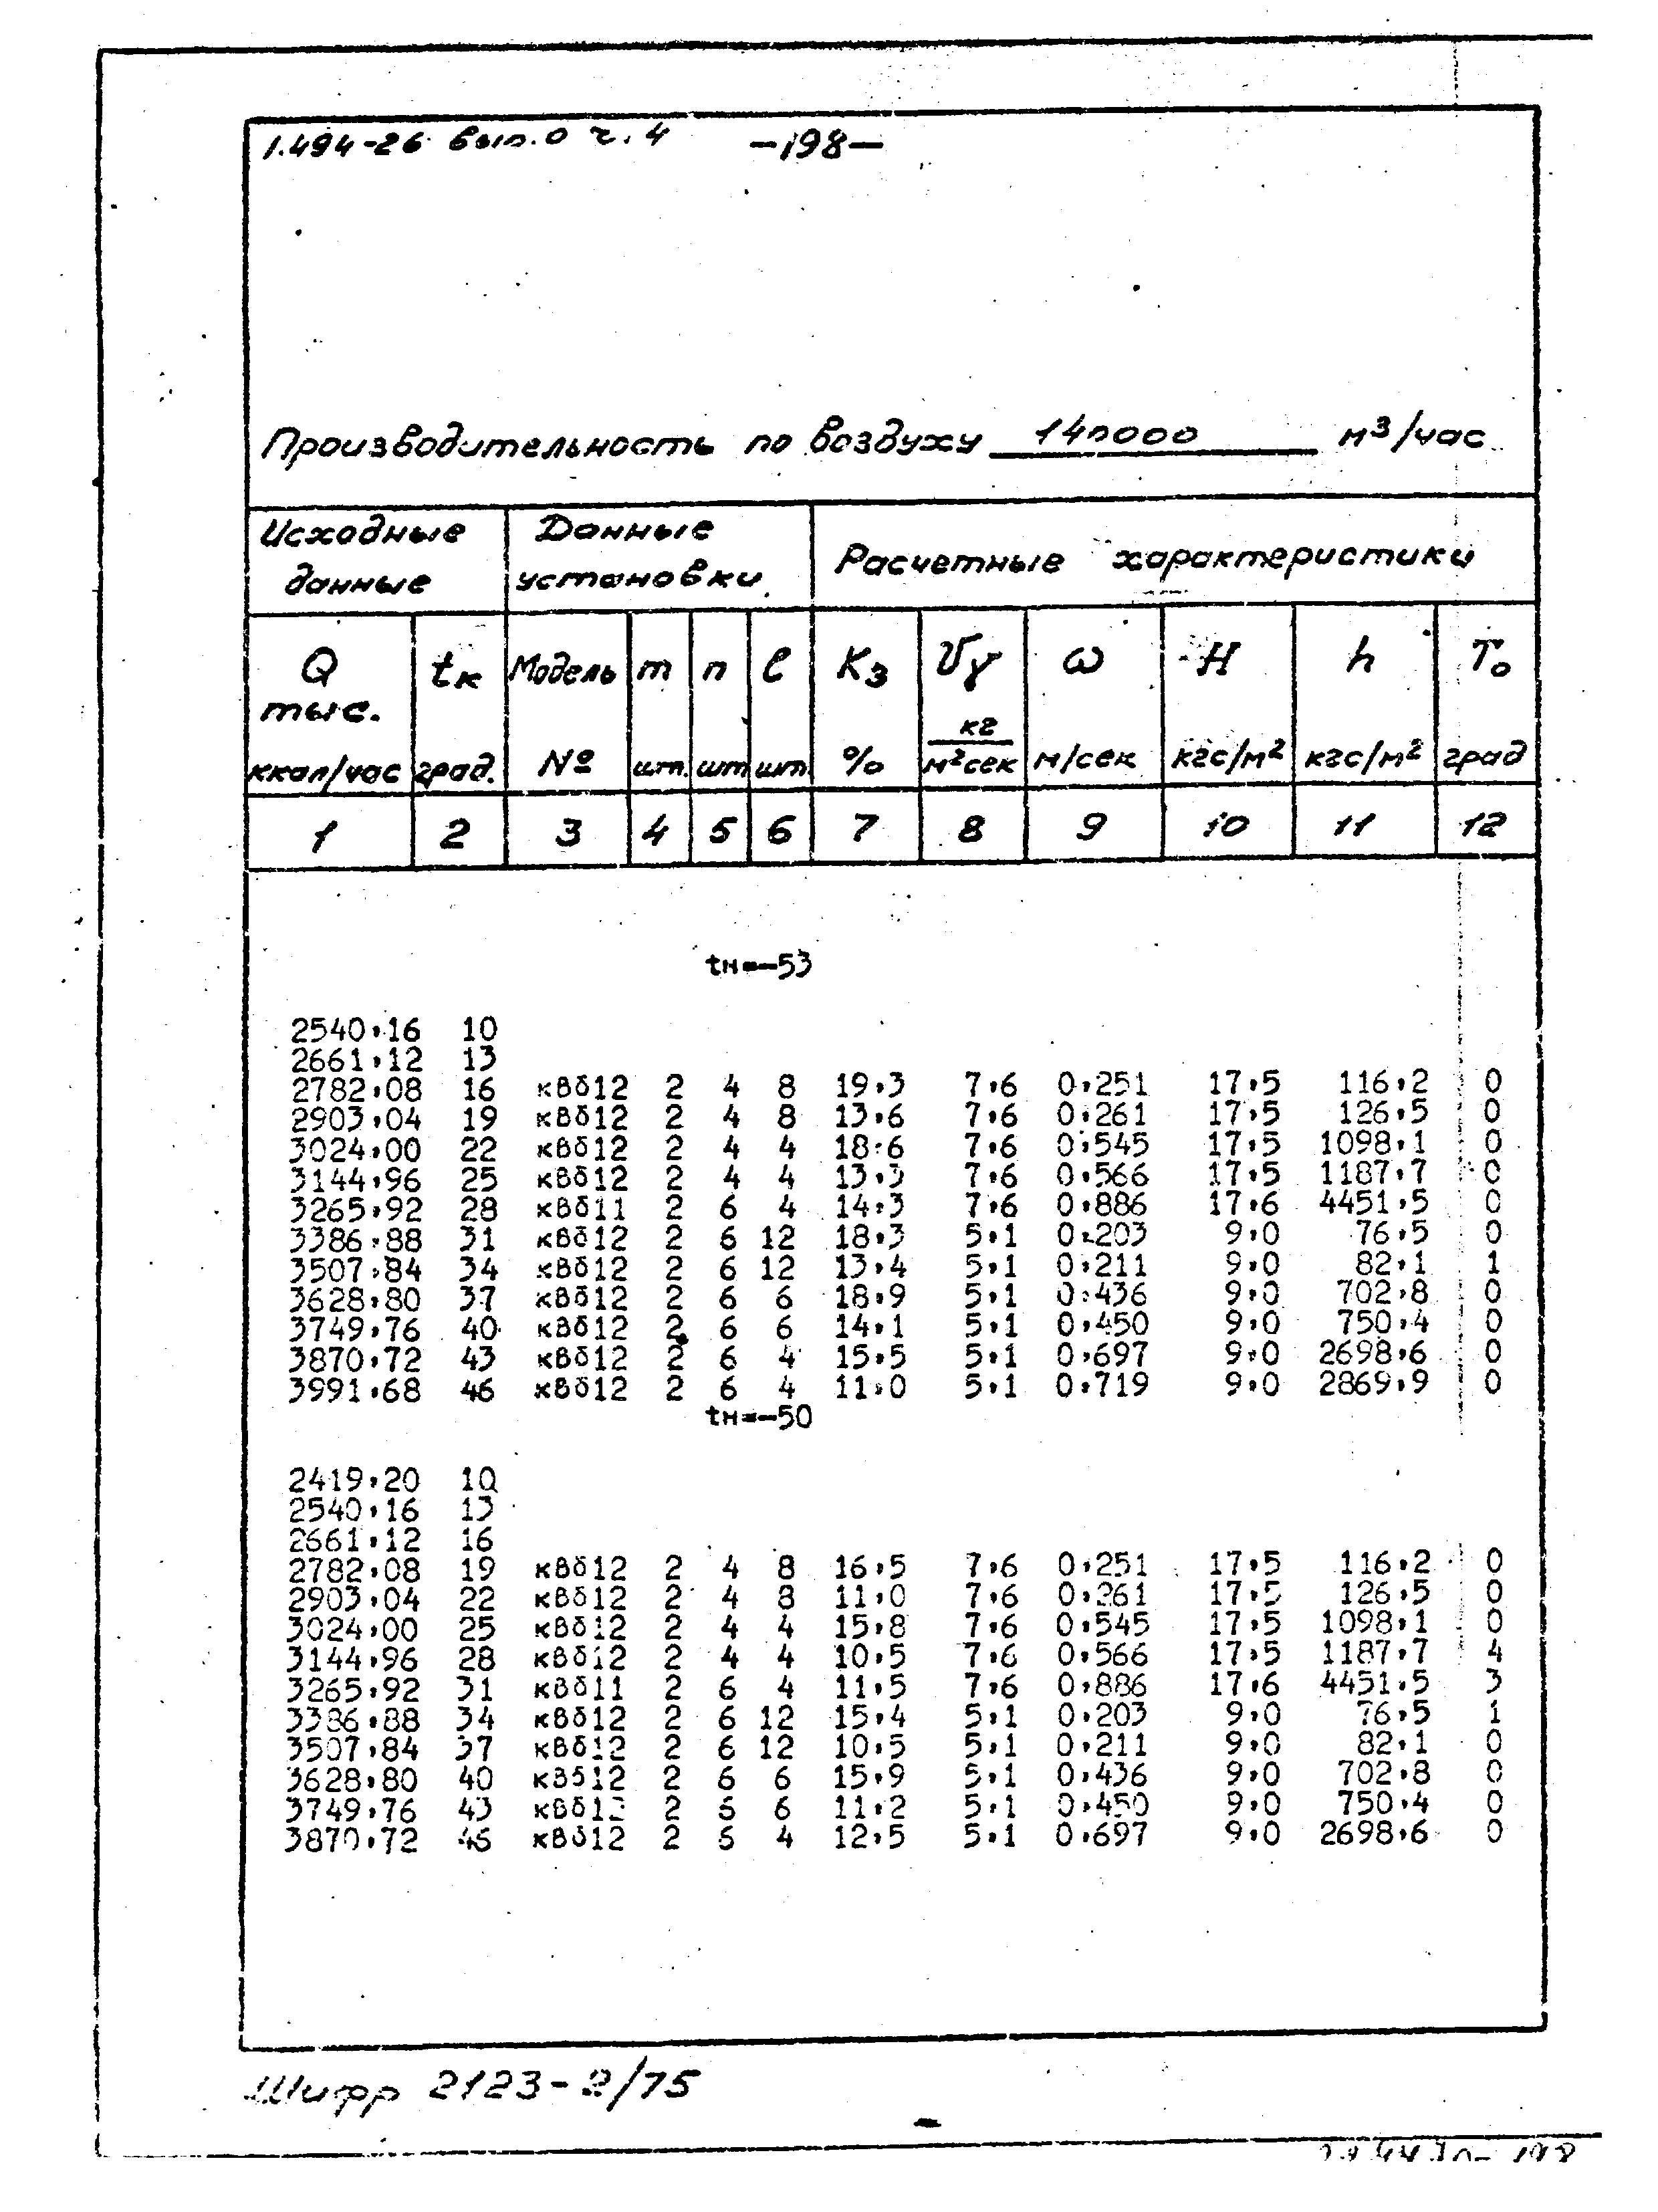 1.494-26 вып.0 ч.4 -198-
Производительность по воздуху 140000 м³/час
Исходные данные Данные установки Расчетные характеристики
Q tк Модель m n l Kз Vγ ω H h To
тыс. ккал/час град. № шт. шт шт. % кг/м²сек м/сек кгс/м² кгс/м² град
1 2 3 4 5 6 7 8 9 10 11 12
tн=-53
2540,16 10
2661,12 13
2782,08 16 кВб12 2 4 8 19,3 7,6 0,251 17,5 116,2 0
2903,04 19 кВб12 2 4 8 13,6 7,6 0,261 17,5 126,5 0
3024,00 22 кВб12 2 4 4 18,6 7,6 0,545 17,5 1098,1 0
3144,96 25 кВб12 2 4 4 13,3 7,6 0,566 17,5 1187,7 0
3265,92 28 кВб11 2 6 4 14,3 7,6 0,886 17,6 4451,5 0
3386,88 31 кВб12 2 6 12 18,3 5,1 0,203 9,0 76,5 0
3507,84 34 кВб12 2 6 12 13,4 5,1 0,211 9,0 82,1 1
3628,80 37 кВб12 2 6 6 18,9 5,1 0,436 9,0 702,8 0
3749,76 40 кВб12 2 6 6 14,1 5,1 0,450 9,0 750,4 0
3870,72 43 кВб12 2 6 4 15,5 5,1 0,697 9,0 2698,6 0
3991,68 46 кВб12 2 6 4 11,0 5,1 0,719 9,0 2869,9 0
tн=-50
2419,20 10
2540,16 13
2661,12 16
2782,08 19 кВб12 2 4 8 16,5 7,6 0,251 17,5 116,2 0
2903,04 22 кВб12 2 4 8 11,0 7,6 0,261 17,5 126,5 0
3024,00 25 кВб12 2 4 4 15,8 7,6 0,545 17,5 1098,1 0
3144,96 28 кВб12 2 4 4 10,5 7,6 0,566 17,5 1187,7 4
3265,92 31 кВб11 2 6 4 11,5 7,6 0,886 17,6 4451,5 3
3386,88 34 кВб12 2 6 12 15,4 5,1 0,203 9,0 76,5 1
3507,84 37 кВб12 2 6 12 10,5 5,1 0,211 9,0 82,1 0
3628,80 40 кВб12 2 6 6 15,9 5,1 0,436 9,0 702,8 0
3749,76 43 кВб12 2 6 6 11,2 5,1 0,450 9,0 750,4 0
3870,72 46 кВб12 2 6 4 12,5 5,1 0,697 9,0 2698,6 0
Шифр 2123-2/75